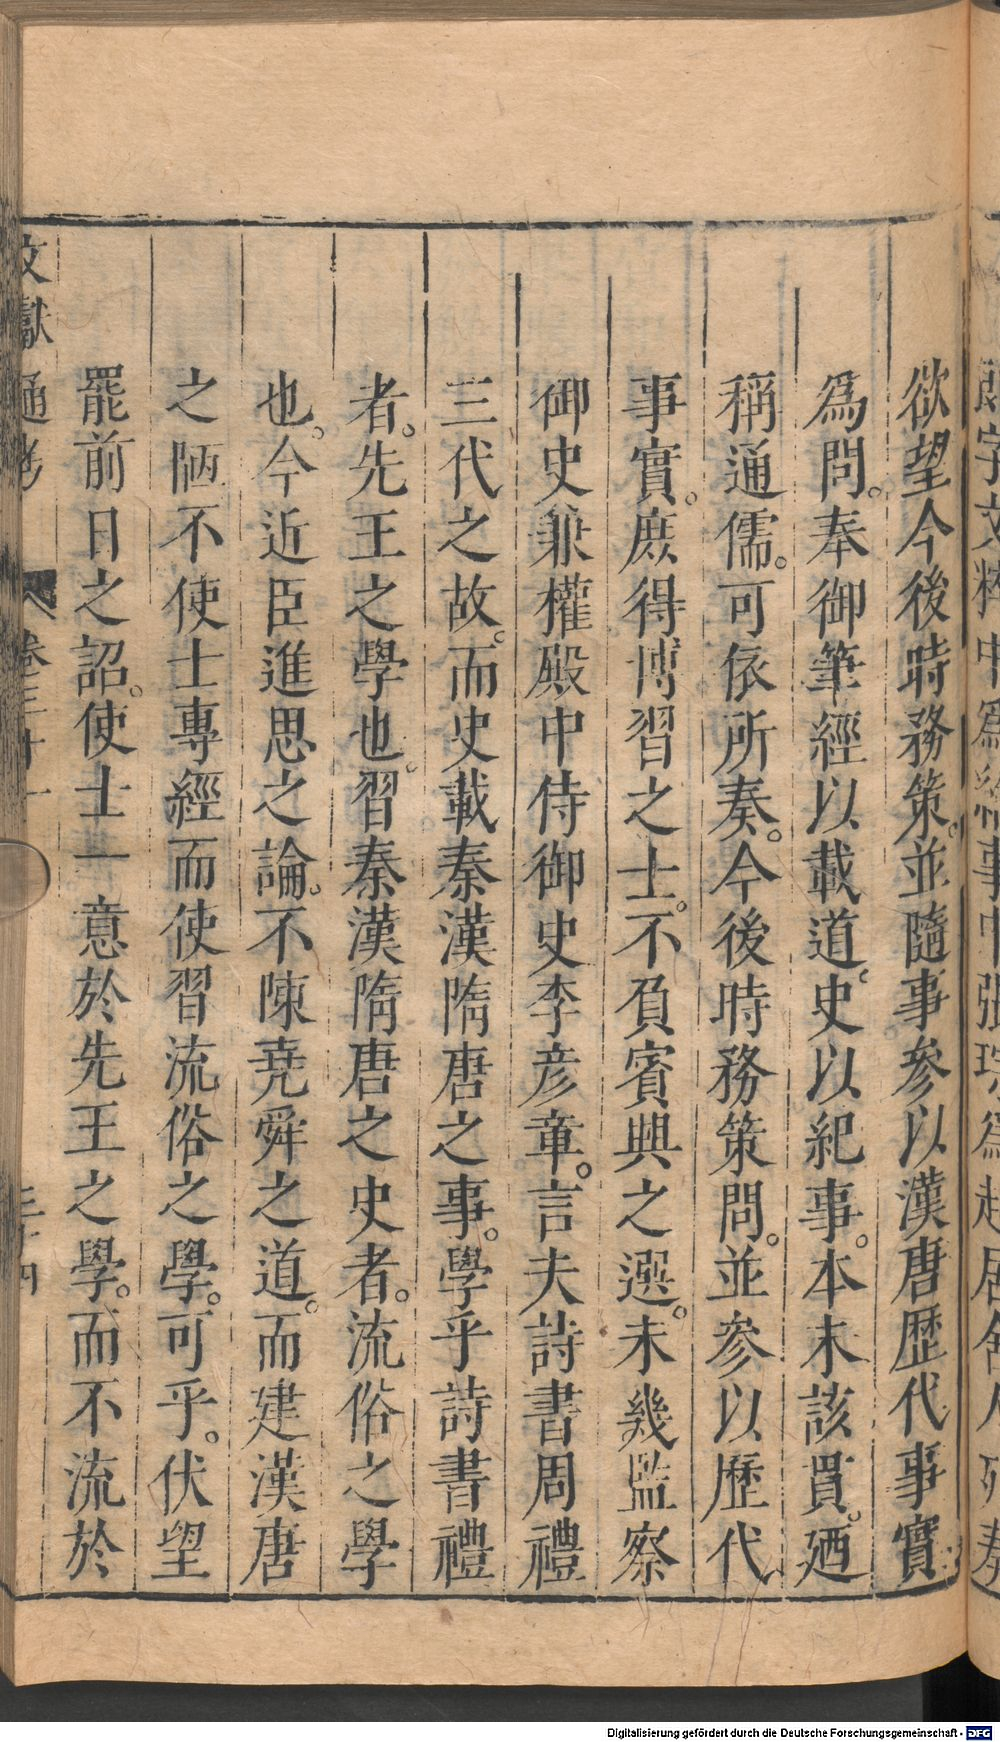 欲望今後時務策。並隨事參以漢唐歷代事實
爲問。奉御筆經以載道。史以紀事。本末該貫。廼
稱通儒。可依所奏。今後時務策問。並參以歷代
事實。庶得博習之士。不負賓興之選。未幾監察
御史兼權殿中侍御史李彥章。言夫詩書周禮
三代之故。而史載秦漢隋唐之事。學乎詩書禮
者。先王之學也。習秦漢隋唐之史者。流俗之學
也。今近臣進思之論。不陳堯舜之道。而建漢唐
之陋不使士專經而使習流俗之學。可乎。伏望
罷前日之詔。使士一意於先王之學。而不流於
文獻通考 卷三十一
Digitalisierung gefördert durch die Deutsche Forschungsgemeinschaft - DFG